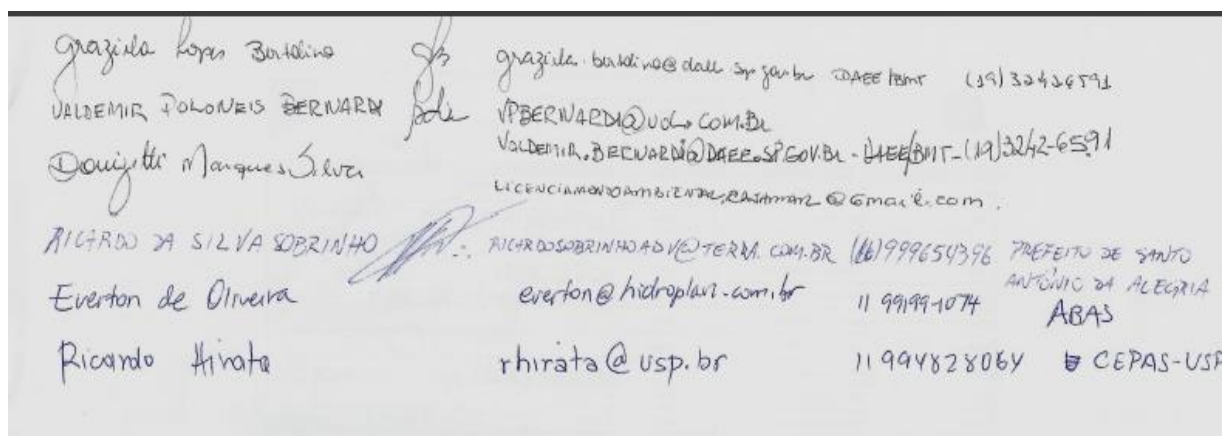 Graziela Lopes Bertolino graziela.bertolino@daee.sp.gov.br DAEE/BMT (19) 32426591
VALDEMIR POLONEIS BERNARDI VPBERNARDI@UOL.COM.BR
VALDEMIR.BERNARDI@DAEE.SP.GOV.BR - DAEE/BMT - (19) 3242-6591
Donizetti Marques Silva
LICENCIAMENTOAMBIENTAL.CAJAMAR@Gmail.com.
RICARDO DA SILVA SOBRINHO RICARDOSOBRINHOADV@TERRA.COM.BR (16) 999654396 PREFEITO DE SANTO
ANTÔNIO DA ALEGRIA
Everton de Oliveira everton@hidroplan.com.br 11 99199-1074 ABAS
Ricardo Hirata rhirata@usp.br 11 994828064 CEPAS-USP